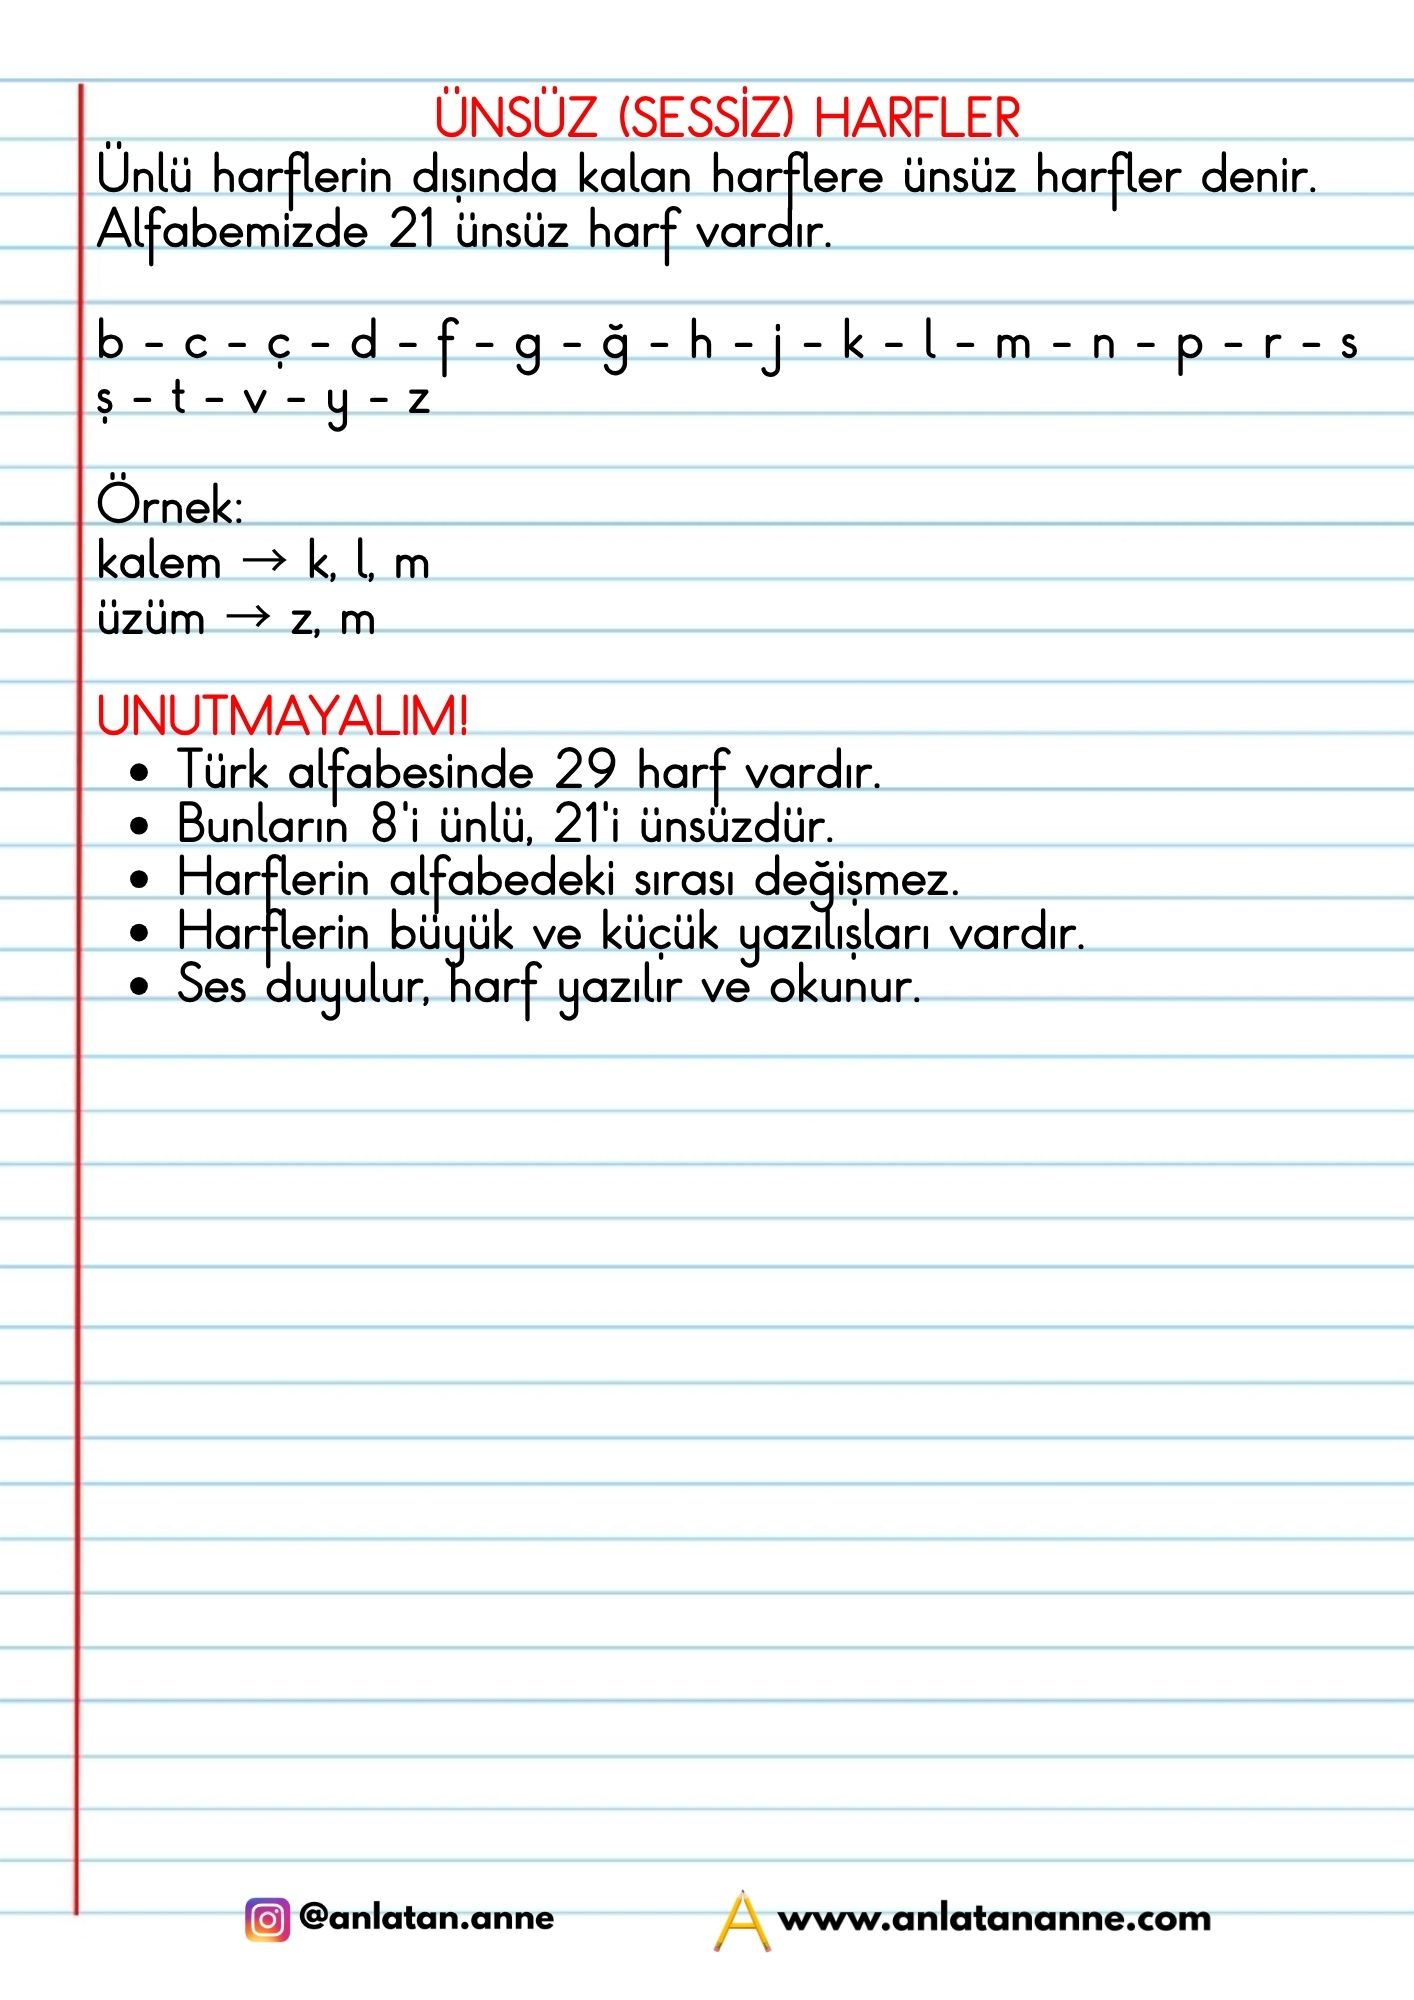 ÜNSÜZ (SESSİZ) HARFLER
Ünlü harflerin dışında kalan harflere ünsüz harfler denir.
Alfabemizde 21 ünsüz harf vardır.
b - c - ç - d - f - g - ğ - h - j - k - l - m - n - p - r - s
ş - t - v - y - z
Örnek:
kalem → k, l, m
üzüm → z, m
UNUTMAYALIM!
• Türk alfabesinde 29 harf vardır.
• Bunların 8'i ünlü, 21'i ünsüzdür.
• Harflerin alfabedeki sırası değişmez.
• Harflerin büyük ve küçük yazılışları vardır.
• Ses duyulur, harf yazılır ve okunur.
@anlatan.anne
www.anlatananne.com